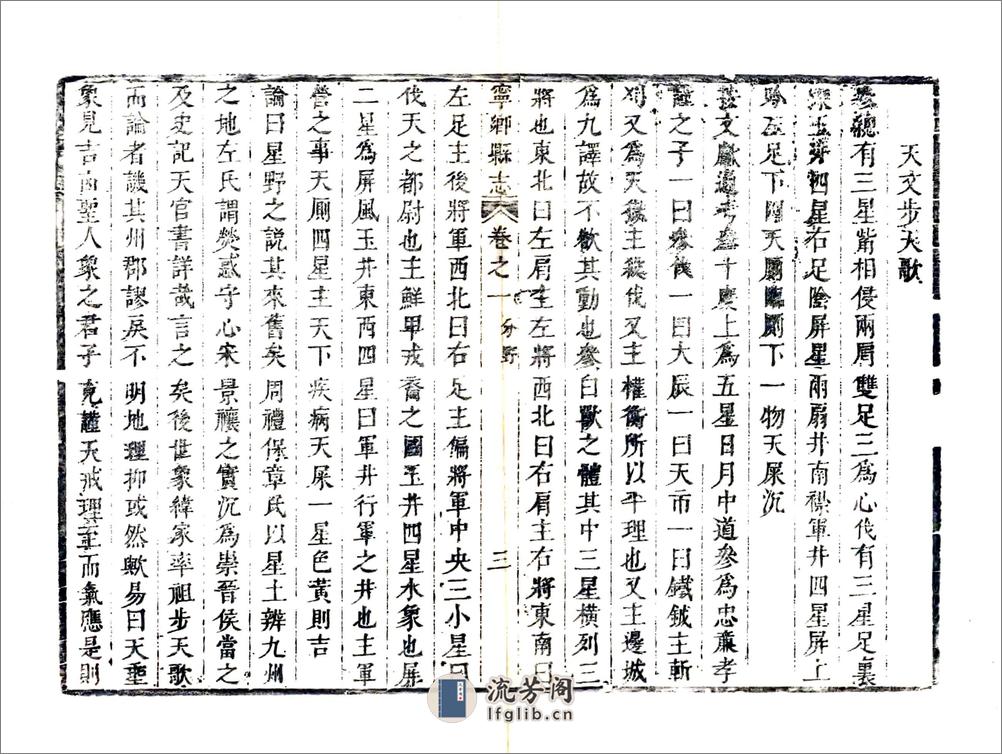 天文步天歌
參總有三星觜相侵兩肩雙足三為心伐有三星足裏
深玉井四星右足陰屏星兩扇井南襟軍井四星屏上
吟左足下四天廁臨廁下一物天屎沉
按文獻通考參十度上為五星日月中道參為忠薰孝
謹之子一曰參伐一曰大辰一曰天市一曰鐵鉞主斬
刈又為天獄主殺伐又主權衡所以平理也又主邊城
為九譯故不欲其動也參白獸之體其中三星橫列三
將也東北曰左肩主左將西北曰右肩主右將東南曰
寧鄉縣志 卷之一 分野 三
左足主後將軍西北曰右足主偏將軍中央三小星曰
伐天之都尉也主鮮甲戎裔之國玉井四星水象也屏
二星為屏風玉井東西四星曰軍井行軍之井也主軍
營之事天廁四星主天下疾病天屎一星色黃則吉
論曰星野之説其來舊矣周禮保章氏以星土辨九州
之地左氏謂熒惑守心宋景禳之實沉為祟晉侯當之
及史記天官書詳哉言之矣後世象緯家率祖步天歌
而論者譏其州郡謬戾不明地理抑或然歟易曰天垂
象見吉凶聖人象之君子克謹天戒理至而氣應是則
流芳阁
lfglib.cn